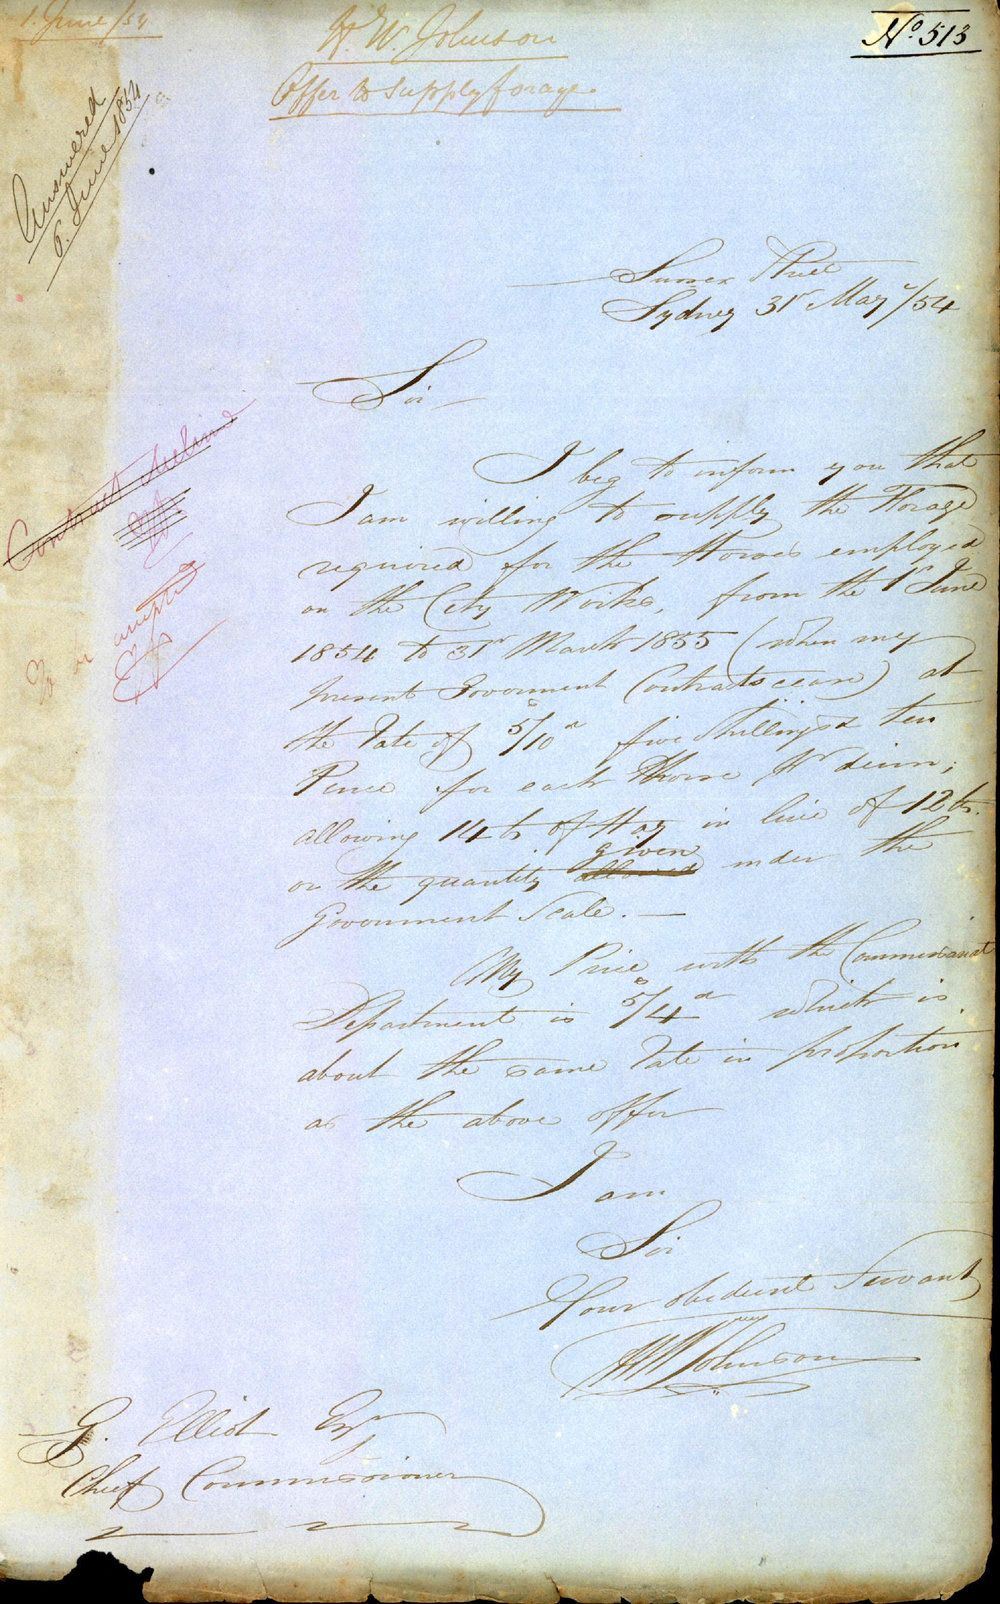 1. June /54
H. W. Johnson
Offer to supply forage.
No. 513
Answered
6. June 1854
Sussex Street
Sydney 31st May /54
Sir
I beg to inform you that
I am willing to supply the Forage
required for the Horses employed
on the City Works, from the 1st June
1854 to 31st March 1855 (when my
present Government Contracts cease) at
the rate of 5s/10d five Shillings & ten
Pence for each Horse Pr diem;
allowing 14 lbs of Hay in lieu of 12 lbs.
or the quantity allowed given under the
Government Scale. —
My Price with the Commissariat
Department is 5s/4d which is
about the same rate in proportion
as the above offer
I am
Sir
Your obedient Servant
HW Johnson
G. Elliot Esqr
Chief Commissioner
Contract